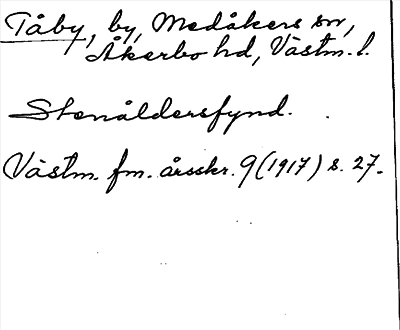 Tåby, by, Medåkers sn,
Åkerbo hd, Västm. l.
Stenåldersfynd.
Västm. fm. årsskr. 9 (1917) s. 27.